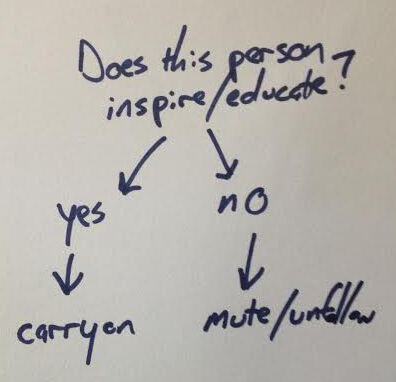 Does this person
inspire/educate?
yes
no
carry on
mute/unfollow